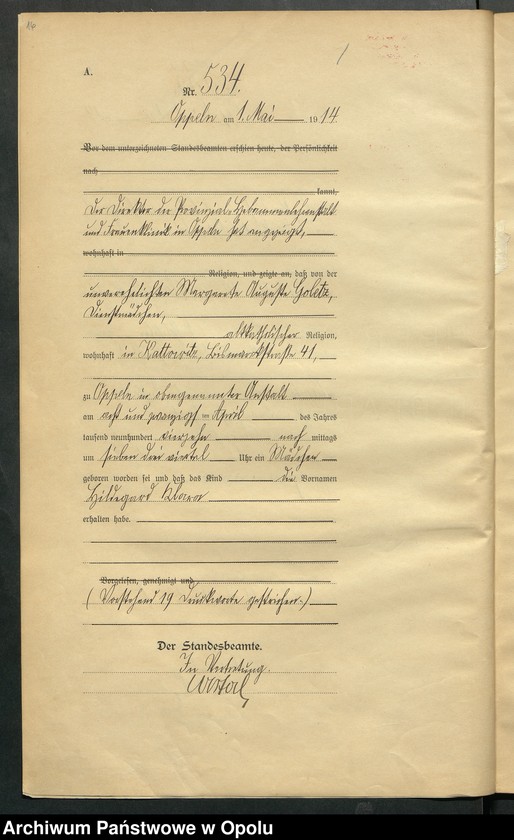 A.
Nr. 534.
Oppeln am 1. Mai 1914
Vor dem unterzeichneten Standesbeamten erschien heute, der Persönlichkeit
nach
kannt,
Der Direktor der Provinzial-Hebammenlehranstalt
und Frauenklinik in Oppeln hat angezeigt,
wohnhaft in
Religion, und zeigte an, daß von der
unverehelichten Margarete Auguste Goletz,
Dienstmädchen,
altkatholischer Religion,
wohnhaft in Kattowitz, Bismarckstraße 41,
zu Oppeln in obengenannter Anstalt
am acht und zwanzigsten April des Jahres
tausend neunhundert vierzehn nach mittags
um sieben drei viertel Uhr ein Mädchen
geboren worden sei und daß das Kind die Vornamen
Hildegard Klara
erhalten habe.
Vorgelesen, genehmigt und
(Vorstehend 19 Druckworte gestrichen.)
Der Standesbeamte.
In Vertretung.
Archiwum Państwowe w Opolu